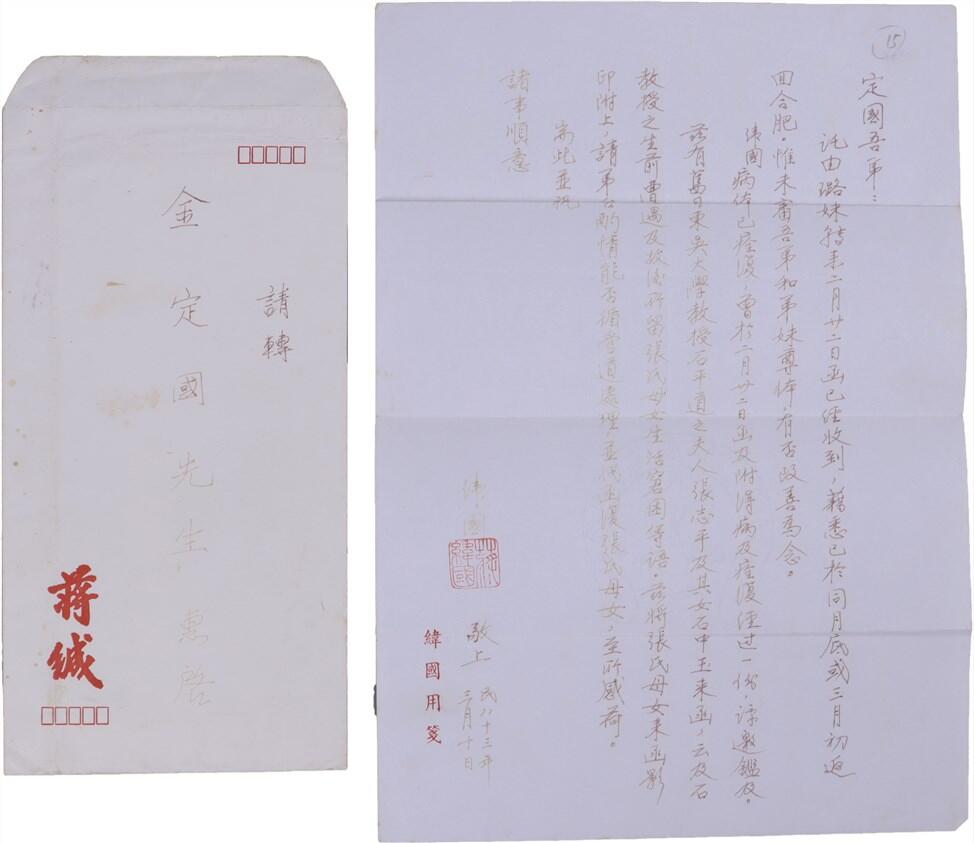 請轉
金定國先生惠啓
蔣緘
15
定國吾弟：
託由璐妹轉來二月廿二日函已經收到，藉悉已於同月底或三月初返
回合肥。惟未審吾弟和弟妹尊体，有否改善為念。
緯國病体已痊復，曾於二月廿二日函及附得病及痊復經過一份，諒邀鑑及。
茲有萬可東吳大學教授石平道之夫人張志平及其女石中玉來函，云及石
教授之生前遭遇及故後所留張氏母女生活窘困等語。茲將張氏母女來函影
印附上，請弟台酌情能否循常道處理，並代函復張氏母女，至所感荷。
耑此並祝
諸事順意
緯國
蔣緯國
敬上
民八十三年
三月十日
緯國用箋